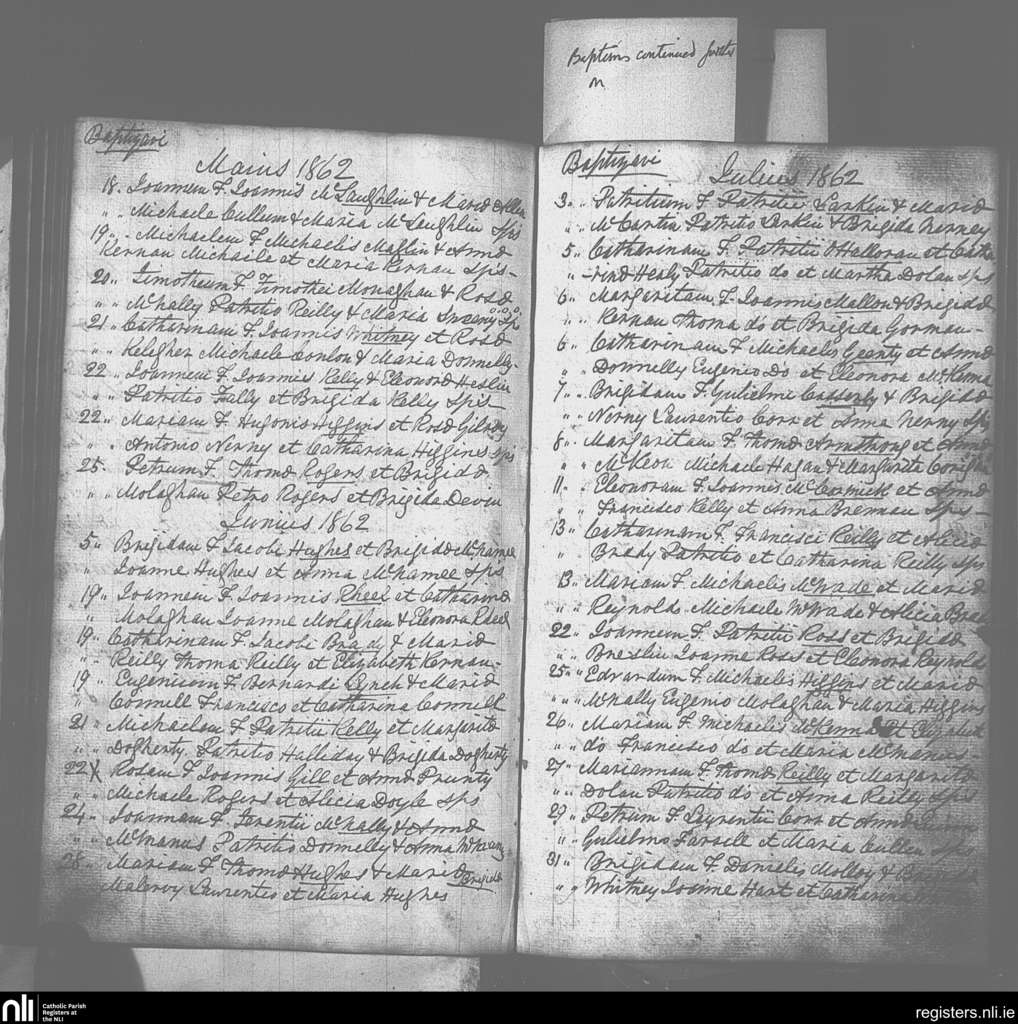 Baptisms continued further
on
Baptizavi
Maius 1862
18. Joannem F. Joannis McLaughlin & Maria Allen
" . Michaele Cullum & Maria McLaughlin Sps
19 " . Michaelem F Michaelis Maglin & Anna
Kernan Michaile et Maria Kernan Sps -
20 .. Timotheum F Timothei Monaghan & Rosa
" .. McNally Patritio Reilly & Maria Sweeny Sps
21 .. Catharinam F. Joannis Whitney et Rosa
" .. Keligher Michaele Conlon & Maria Donnelly.
22 .. Joannem F Joannis Kelly & Eleonora Heslin
" .. Patritio Fally et Brigida Kelly Sps
22 .. Mariam F Hugonis Higgins et Rosa Gilroy
" . Antonio Nerny et Catharina Higgins Sps
25. Petrum F. Thoma Rogers et Brigida
" .. Molaghan Petro Rogers et Brigida Devin
Junius 1862
5 .. Brigidam F Jacobi Hughes et Brigida McNamee
" Joanne Hughes et Anna McNamee Sps
19 .. Joannem F Joannis Rhee et Catharina
" Molaghan Joanne Molaghan & Eleonora
19. Catharinam F Jacobi Brady & Maria
" .. Reilly Thoma Reilly et Elizabeth Kernan -
19 " Eugenium F Bernardi Lynch & Maria
" Connell Francisco et Catharina Connell
21 .. Michaelem F Patritii Kelly et Margarita
" " Dogherty Patritio Halliday & Brigida Dogherty
22 X Rosam F Joannis Gill et Anna Prunty
" .. Michaele Rogers et Alicia Doyle Sps
24 .. Joannem F Terentii McNally & Anna
" .. McManus Patritio Donnelly & Anna
28 .. Mariam F Thoma Hughes & Maria Brigida
Mulervy Laurentio et Maria Hughes
Baptizavi
Julius 1862
3 .. Patritium F Patritii Larkin & Maria
" .. McCartin Patritio Larkin & Brigida Nerney
5 .. Catharinam F Patritii OHalloran et Catha
" - rina Healy Patritio do et Martha Dolan Sps
6 .. Margaritam F. Joannis Mallon & Brigida
" .. Kernan Thoma do et Brigida Gorman -
6 .. Catharinam F Michaelis Geanty et Anna
" Donnelly Eugenio Do et Eleonora McKenna
7 .. Brigidam F. Gulielmi Casserly & Brigida
" .. Nerny Laurentio Corr et Anna Nerny Sps
8 .. Margaritam F. Thoma Armstrong et Anna
" " McKeon Michaele Hagan & Margarita
11 .. Eleonoram F Joannis McCormick et Anna
" Francisco Kelly et Anna Brennan Sps -
13 .. Catharinam F. Francisci Reilly et Alicia
" Brady Patritio et Catharina Reilly Sps
13 .. Mariam F Michaelis McWade et Maria
" .. Reynolds Michaele McWade & Alicia
22 .. Joannem F. Patritii Ross et Brigida
" .. Breslin Joanne Ross et Eleonora Reynolds
25 .. Edvardum F. Michaelis Higgins et Maria
" " McNally Eugenio Molaghan & Maria Higgins
26 .. Mariam F. Michaelis McKenna et Elizabet
" .. do Francisco do et Maria McManus
27 .. Mariannam F. Thoma Reilly et Margarita
" .. Dolan Patritio do et Anna Reilly Sps
29 .. Petrum F Laurentii Corr et Anna
" .. Gulielmo Farrell et Maria Cullen
31 .. Brigidam F. Danielis Molloy &
" " Whitney Joanne Hart et Catharina
nli
Catholic Parish
Registers at
the NLI
registers.nli.ie